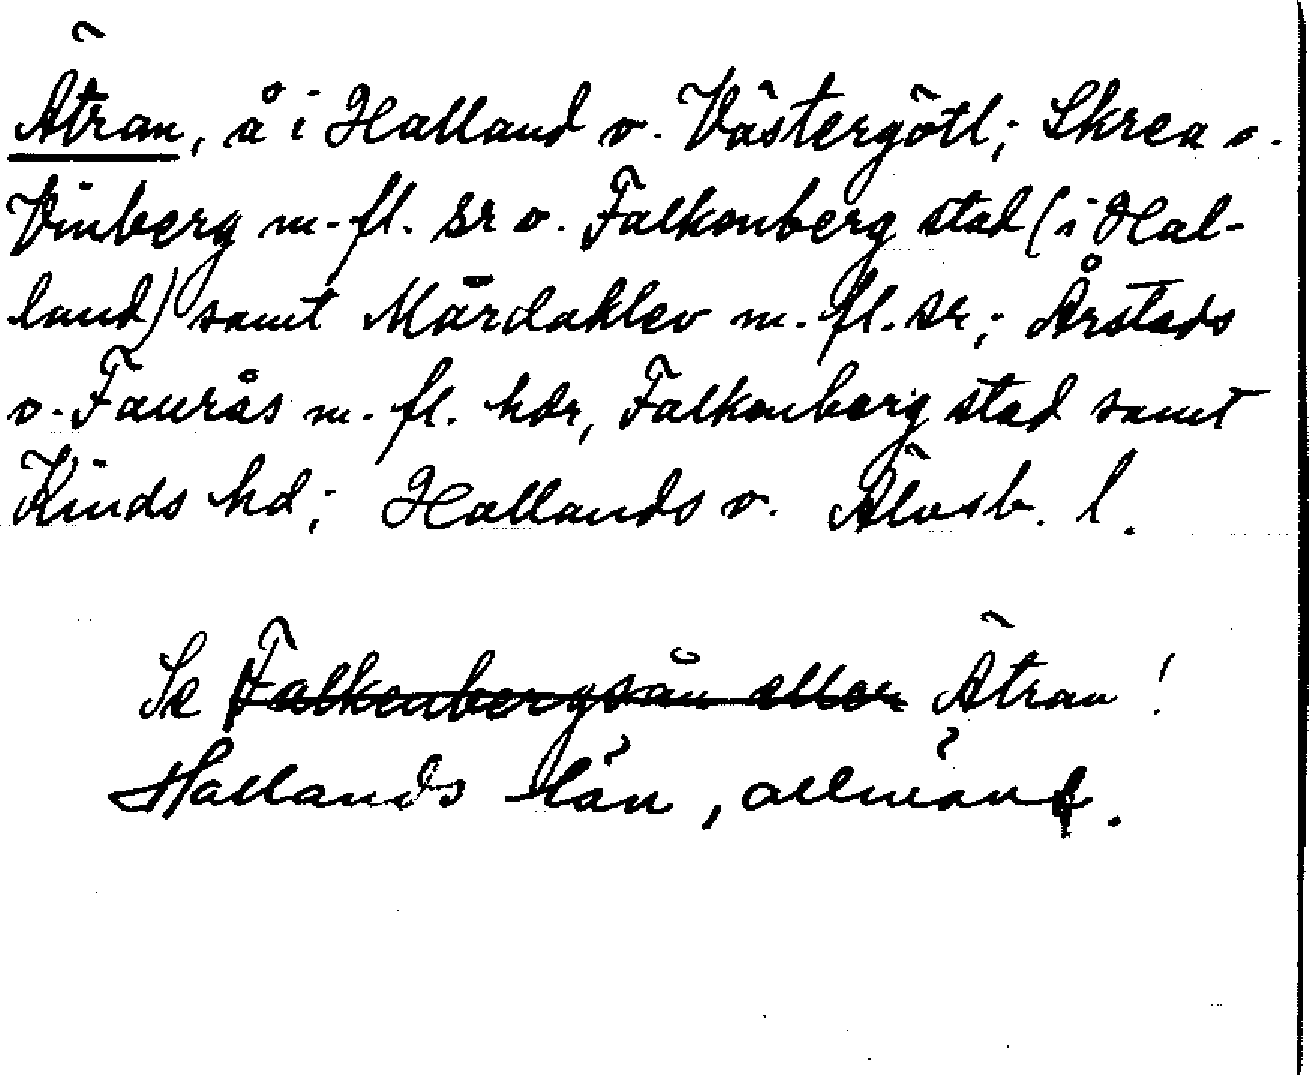 Ätran, å i Halland o. Västergötl; Skrea o.
Vinberg m. fl. sr o. Falkenberg stad (i Hal-
land) samt Mårdaklev m. fl. sr; Årstads
o. Faurås m. fl. hdr, Falkenberg stad samt
Kinds hd; Hallands o. Älvsb. l.
Se Falkenbergsån eller Ätran!
Hallands län, allmänt.